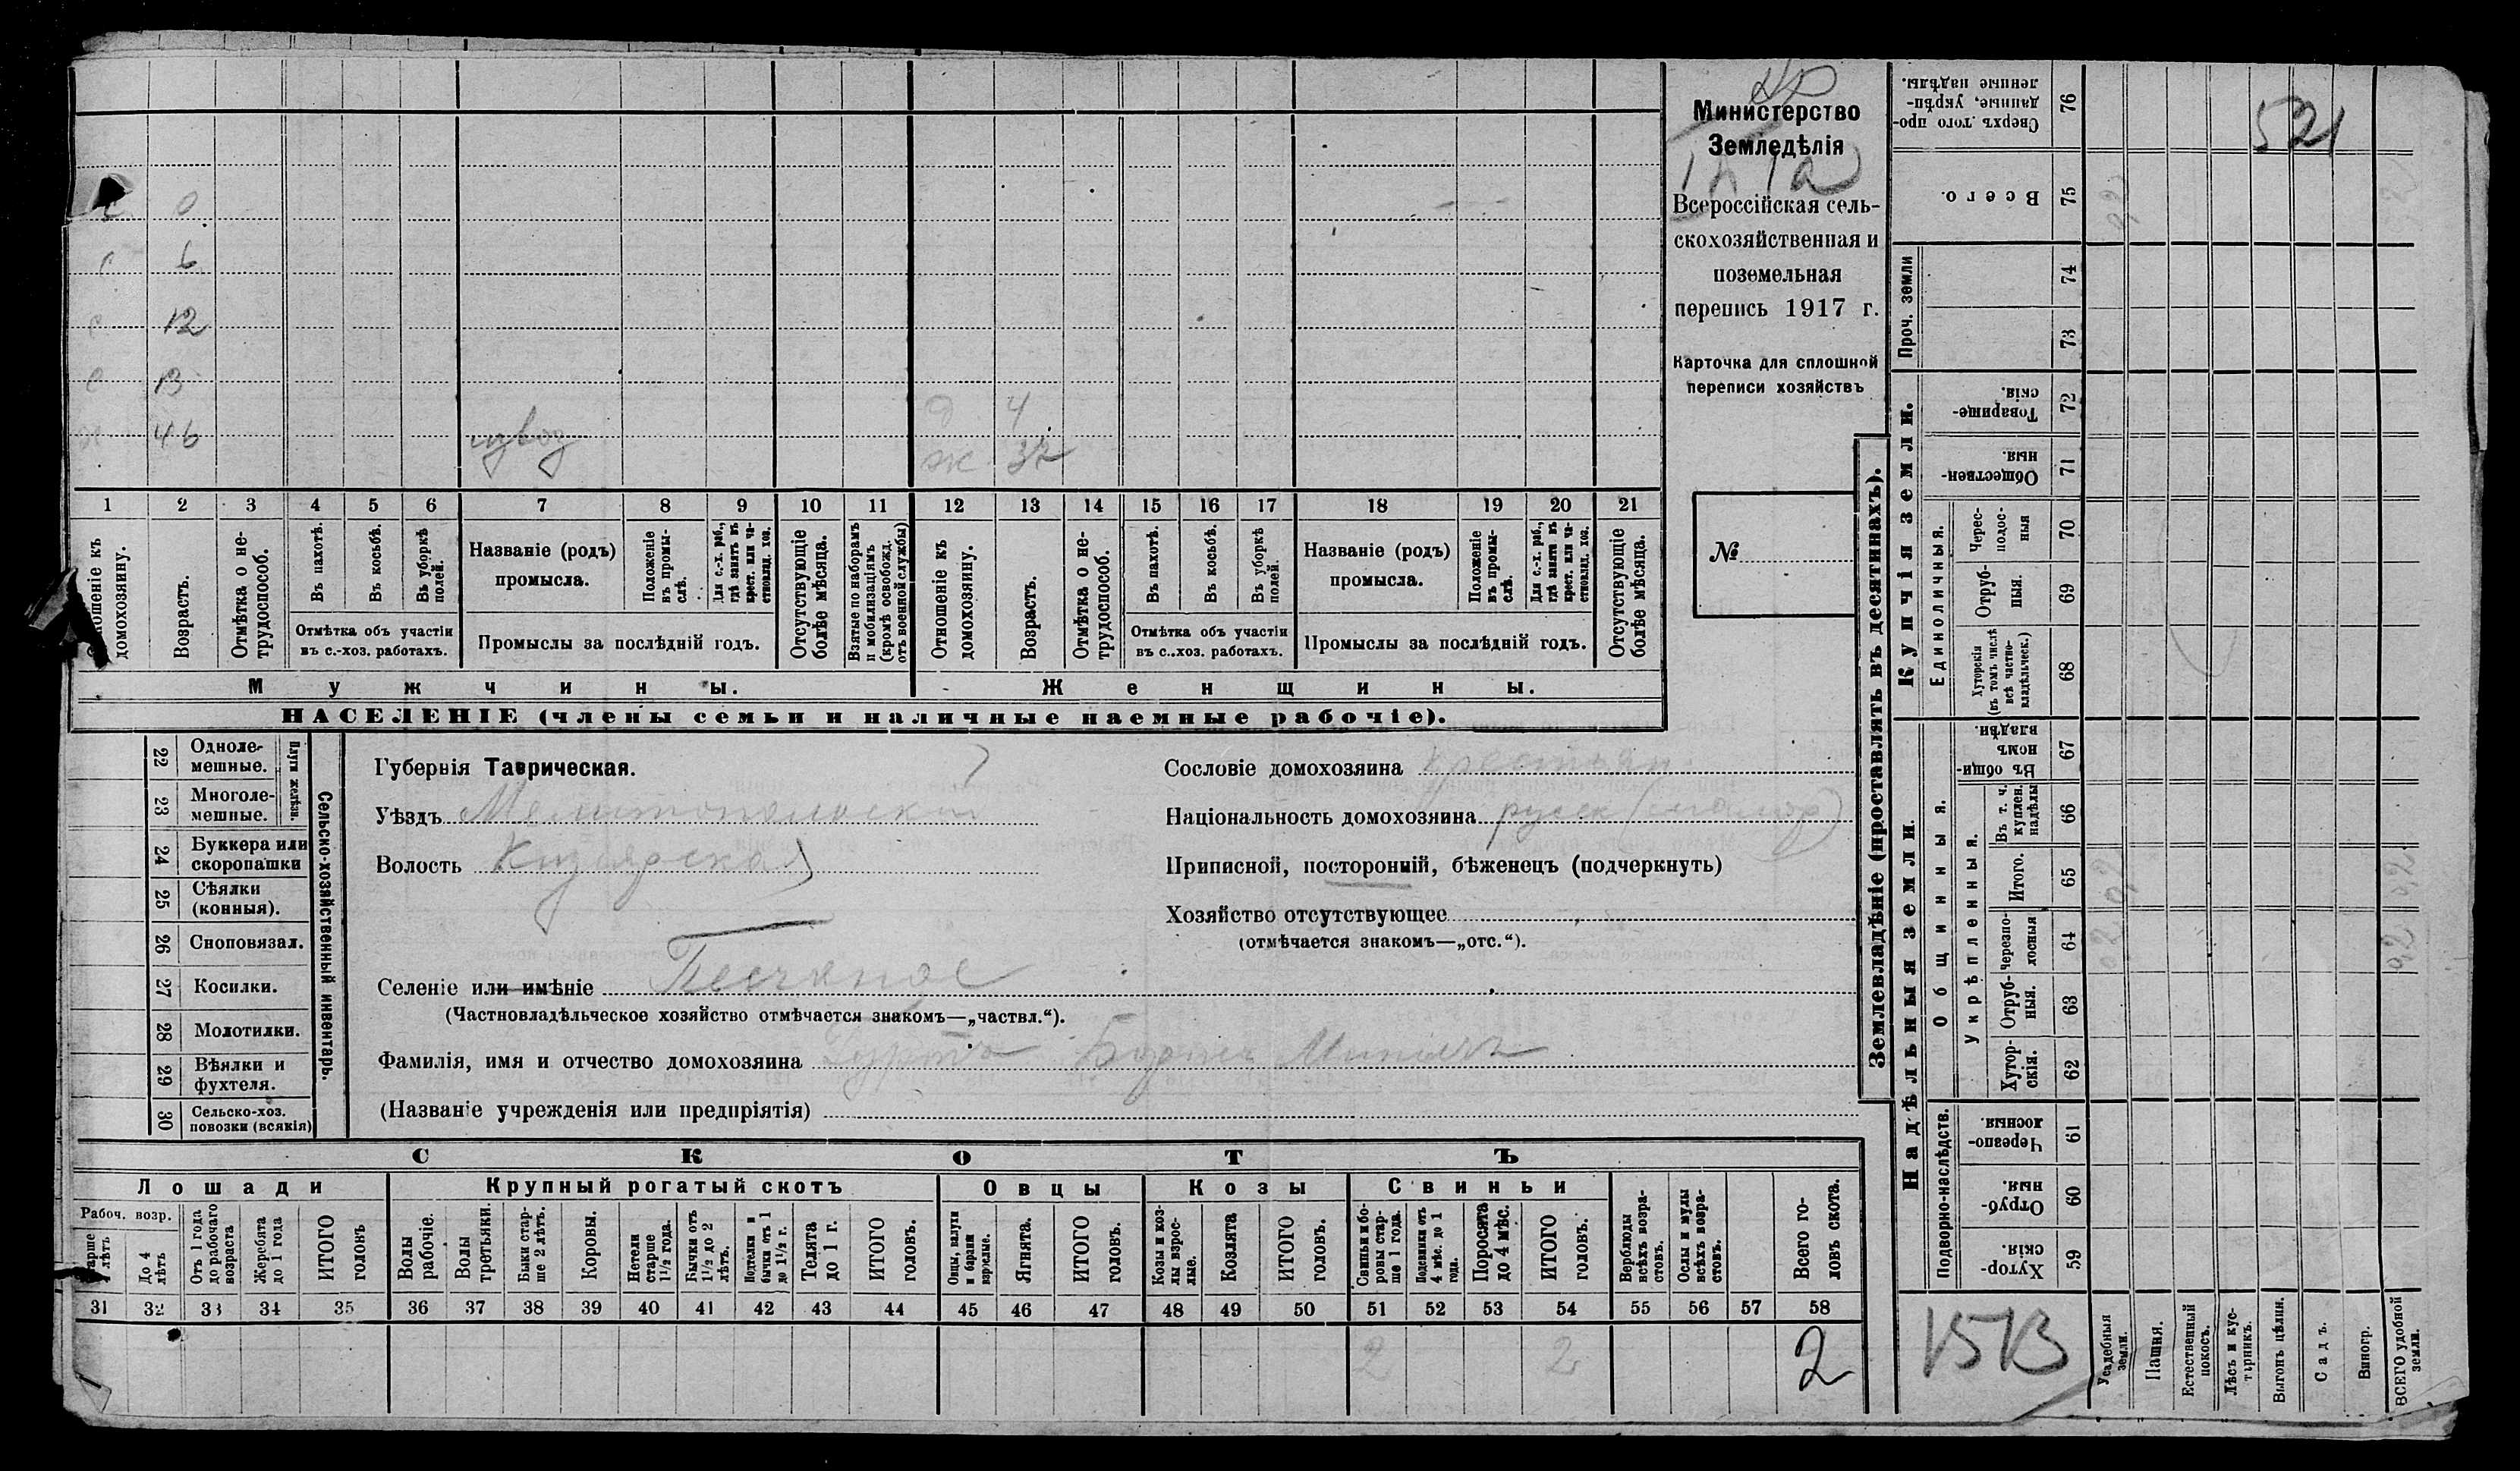 Министерство
Земледѣлія
Всероссійская сель-
скохозяйственная и
поземельная
перепись 1917 г.
Карточка для сплошной
переписи хозяйствъ
№
521
0
с 6
с 12
с 13
46 извоз
д 4
ж 37
1 2 3 4 5 6 7 8 9 10 11 12 13 14 15 16 17 18 19 20 21
Отношеніе къ домохозяину.
Возрастъ.
Отмѣтка о не-
трудоспособ.
Въ пахотѣ.
Въ косьбѣ.
Въ уборкѣ полей.
Отмѣтка объ участіи
въ с.-хоз. работахъ.
Названіе (родъ)
промысла.
Положеніе въ промы-
слѣ.
Для с.-х. раб., гдѣ занятъ въ крест. или ча-
стновлад. хоз.
Промыслы за послѣдній годъ.
Отсутствующіе болѣе мѣсяца.
Взятые по наборамъ и мобилизаціямъ (кромѣ освобожд. отъ военной службы)
Отношеніе къ домохозяину.
Возрастъ.
Отмѣтка о не-
трудоспособ.
Въ пахотѣ.
Въ косьбѣ.
Въ уборкѣ полей.
Отмѣтка объ участіи
въ с.-хоз. работахъ.
Названіе (родъ)
промысла.
Положеніе въ промы-
слѣ.
Для с.-х. раб., гдѣ занята въ крест. или ча-
стновлад. хоз.
Промыслы за послѣдній годъ.
Отсутствующіе болѣе мѣсяца.
Мужчины.
Женщины.
НАСЕЛЕНІЕ (члены семьи и наличные наемные рабочіе).
Сельско-хозяйственный инвентарь.
Плуги желѣзн.
22 Одноле-
мешные.
23 Многоле-
мешные.
24 Буккера или
скоропашки
25 Сѣялки
(конныя).
26 Сноповязал.
27 Косилки.
28 Молотилки.
29 Вѣялки и
фухтеля.
30 Сельско-хоз.
повозки (всякія)
Губернія Таврическая.
Уѣздъ Мелитопольскій
Волость Кизіярская
Селеніе или имѣніе Песчаное
(Частновладѣльческое хозяйство отмѣчается знакомъ—„частвл.“).
Фамилія, имя и отчество домохозяина
(Названіе учрежденія или предпріятія)
Сословіе домохозяина крестьян.
Національность домохозяина русск
Приписной, посторонній, бѣженецъ (подчеркнуть)
Хозяйство отсутствующее
(отмѣчается знакомъ—„отс.“).
СКОТЪ
Лошади
Рабоч. возр.
Старше 4 лѣтъ
До 4 лѣтъ
Отъ 1 года до рабочаго возраста
Жеребята до 1 года
ИТОГО головъ
Крупный рогатый скотъ
Волы рабочіе.
Волы третьяки.
Быки стар-
ше 2 лѣтъ.
Коровы.
Нетели старше 1½ года.
Бычки отъ 1½ до 2 лѣтъ.
Подтелки и бычки отъ 1 до 1½ г.
Телята до 1 г.
ИТОГО головъ.
Овцы
Овцы, валухи и бараны взрослые.
Ягнята.
ИТОГО головъ.
Козы
Козы и коз-
лы взрос-
лые.
Козлята
ИТОГО головъ.
Свиньи
Свиньи и бо-
ровы стар-
ше 1 года.
Подсвинки отъ 4 мѣс. до 1 года.
Поросята до 4 мѣс.
ИТОГО головъ.
Верблюды всѣхъ возра-
стовъ.
Ослы и мулы всѣхъ возра-
стовъ.
Всего го-
ловъ скота.
31 32 33 34 35 36 37 38 39 40 41 42 43 44 45 46 47 48 49 50 51 52 53 54 55 56 57 58
2 2 2
Землевладѣніе (проставлять въ десятинахъ).
Надѣльныя земли
Подворно-наслѣдств.
Хутор-
скія. 59
Отруб-
ныя. 60
Черезпо-
лосныя. 61
Общинныя.
Укрѣпленныя.
Хутор-
скія. 62
Отруб-
ныя. 63
Черезпо-
лосныя 64
Итого. 65
Въ т. ч. куплен. надѣлы 66
Въ общин-
номъ владѣн. 67
Купчія земли.
Единоличныя.
Хуторскія (въ томъ числѣ всѣ частно-
владѣльческ.) 68
Отруб-
ныя. 69
Черес-
полос-
ныя 70
Обществен-
ныя. 71
Товарище-
скія 72
Проч. земли
73
74
Всего. 75
Сверхъ того про-
данные, укрѣп-
ленные надѣлы. 76
1513
Усадебныя земли.
Пашня.
Естественный покосъ.
Лѣсъ и кус-
тарникъ.
Выгонъ цѣлин.
Садъ.
Виногр.
ВСЕГО удобной земли.